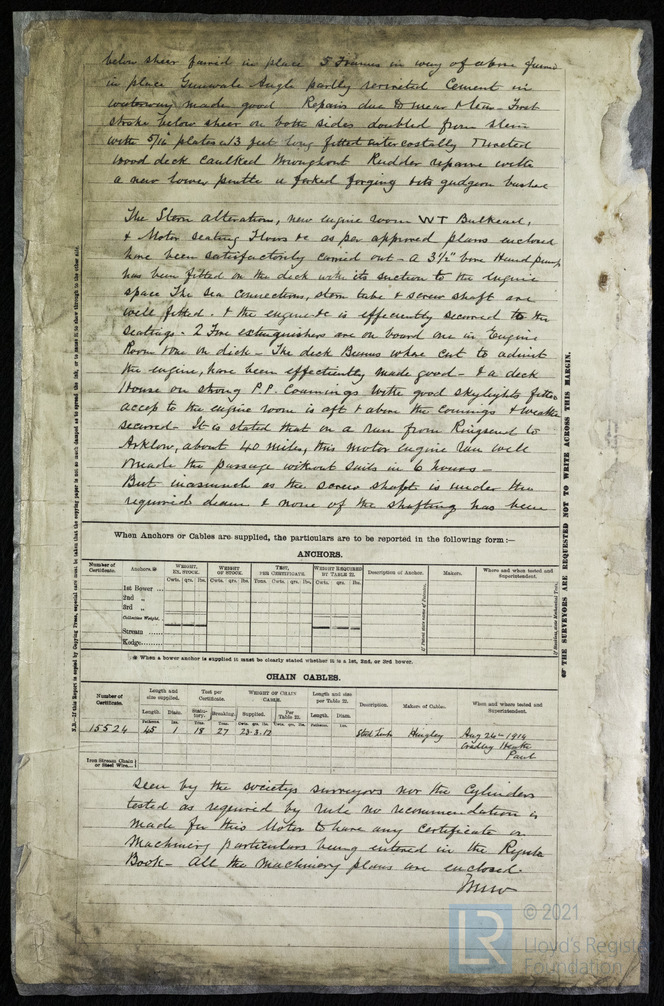 below sheer faired in place 5 Frames in way of above faired
in place Gunwale Angle partly reriveted Cement in
waterway made good Repairs due to wear & tear - First
strake below sheer on both sides doubled from stem
with 5/16" plates 13 feet long fitted intercostally & riveted
wood deck caulked throughout Rudder repaired with
a new lower pintle a forked forging & its gudgeon bushed
The Stern alterations, new engine room WT Bulkhead,
& Motor seating Floors &c as per approved plans enclosed
have been satisfactorily carried out - a 3½" bore Hand pump
has been fitted on the deck with its suction to the engine
space The sea connections, stern tube & screw shaft are
well fitted. & the engine &c is efficiently secured to the
seatings. 2 Fire extinguishers are on board one in Engine
Room & one on deck - The deck Beams where cut to admit
the engine, have been effectively made good - & a deck
House on strong P.P. Coamings with good skylights fitted
access to the engine room is aft & above the comings & weather
secured. It is stated that on a run from Ringsend to
Arklow, about 40 miles, this motor engine ran well
& made the passage without sails in 6 hours -
But inasmuch as the screw shaft is under the
required diam & none of the shafting has been
When Anchors or Cables are supplied, the particulars are to be reported in the following form :—
ANCHORS.
Number of Certificate. Anchors.* WEIGHT, EX. STOCK. WEIGHT OF STOCK. TEST, PER CERTIFICATE. WEIGHT REQUIRED BY TABLE 22. Description of Anchor. Makers. Where and when tested and Superintendent.
Cwts. qrs. lbs. Cwts. qrs. lbs. Tons. Cwts. qrs. lbs. Cwts. qrs. lbs.
1st Bower ...
2nd „
3rd „
Collective Weight.
Stream ...
Kedge...
* When a bower anchor is supplied it must be clearly stated whether it is a 1st, 2nd, or 3rd bower.
CHAIN CABLES.
Number of Certificate. Length and size supplied. Test per Certificate. WEIGHT OF CHAIN CABLE. Length and size per Table 22. Description. Makers of Cables. When and where tested and Superintendent.
Length. Diam. Statutory. Breaking. Supplied. Per Table 22. Length. Diam.
Fathoms. Ins. Tons. Tons. Cwts. qrs. lbs. Cwts. qrs. lbs. Fathoms. Ins.
15524 45 1 18 27 23.3.12 Stud Link Hingley Aug 24th 1914
Cradley Heath
Paul
Iron Stream Chain or Steel Wire...
seen by the society's surveyors nor the Cylinders
tested as required by rule no recommendation is
made for this Motor to have any certificate or
Machinery particulars being entered in the Register
Book - All the Machinery plans are enclosed.
OF THE SURVEYORS ARE REQUESTED NOT TO WRITE ACROSS THIS MARGIN.
LR
© 2021
Lloyd's Register
Foundation